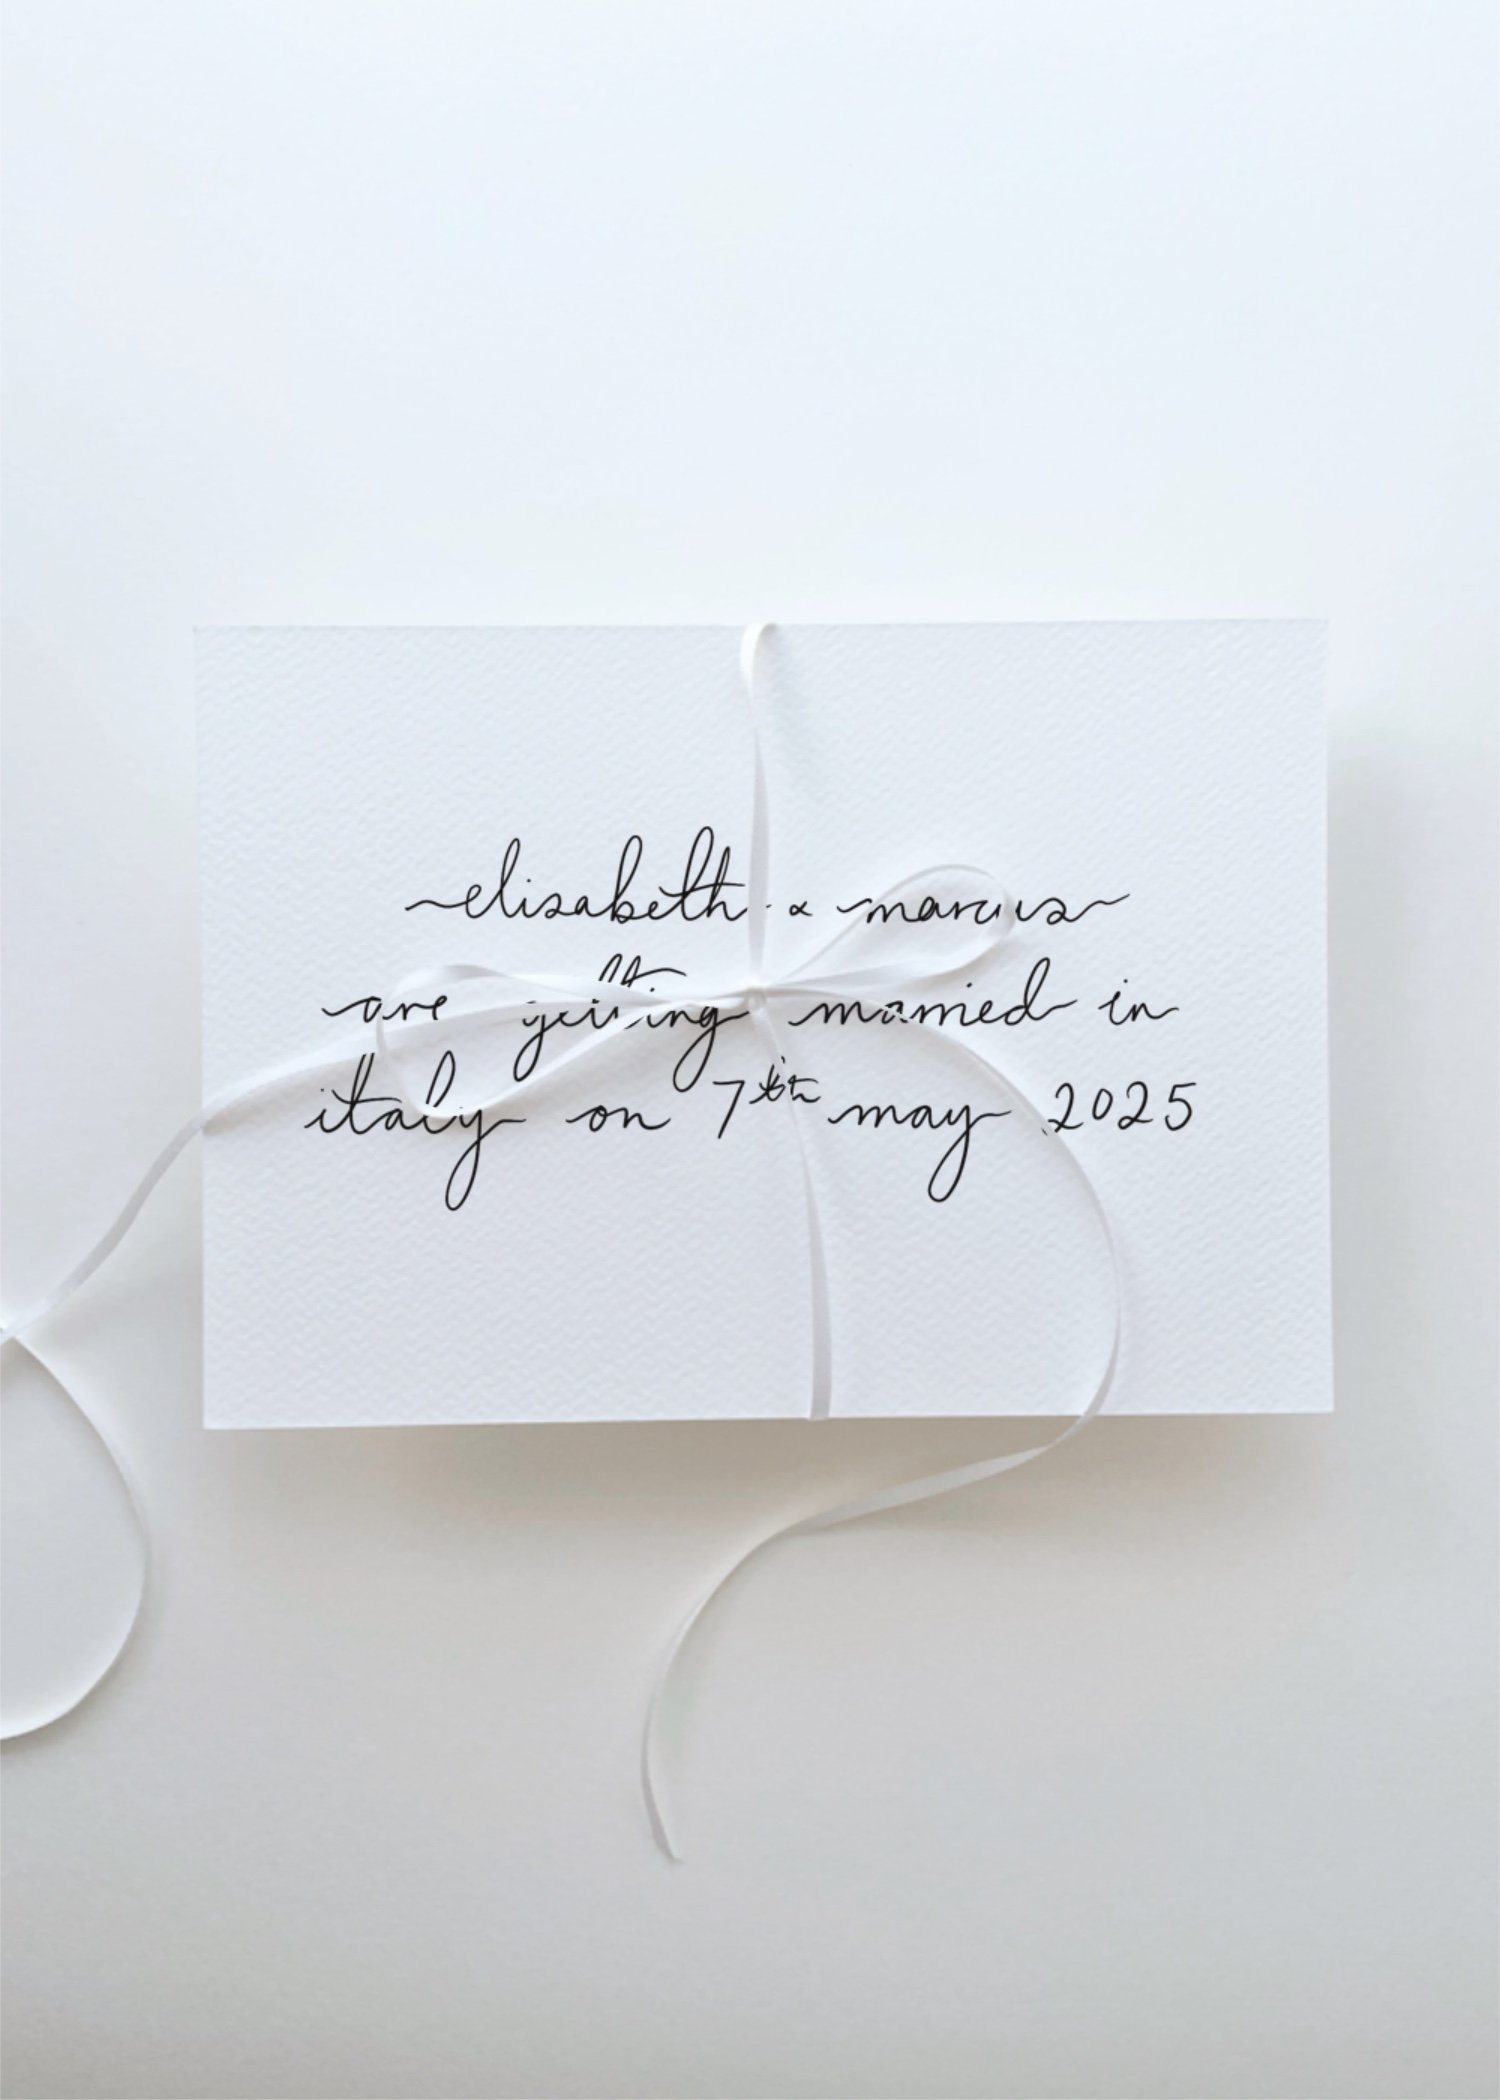 elisabeth & marcus
are getting married in
italy on 7th may 2025